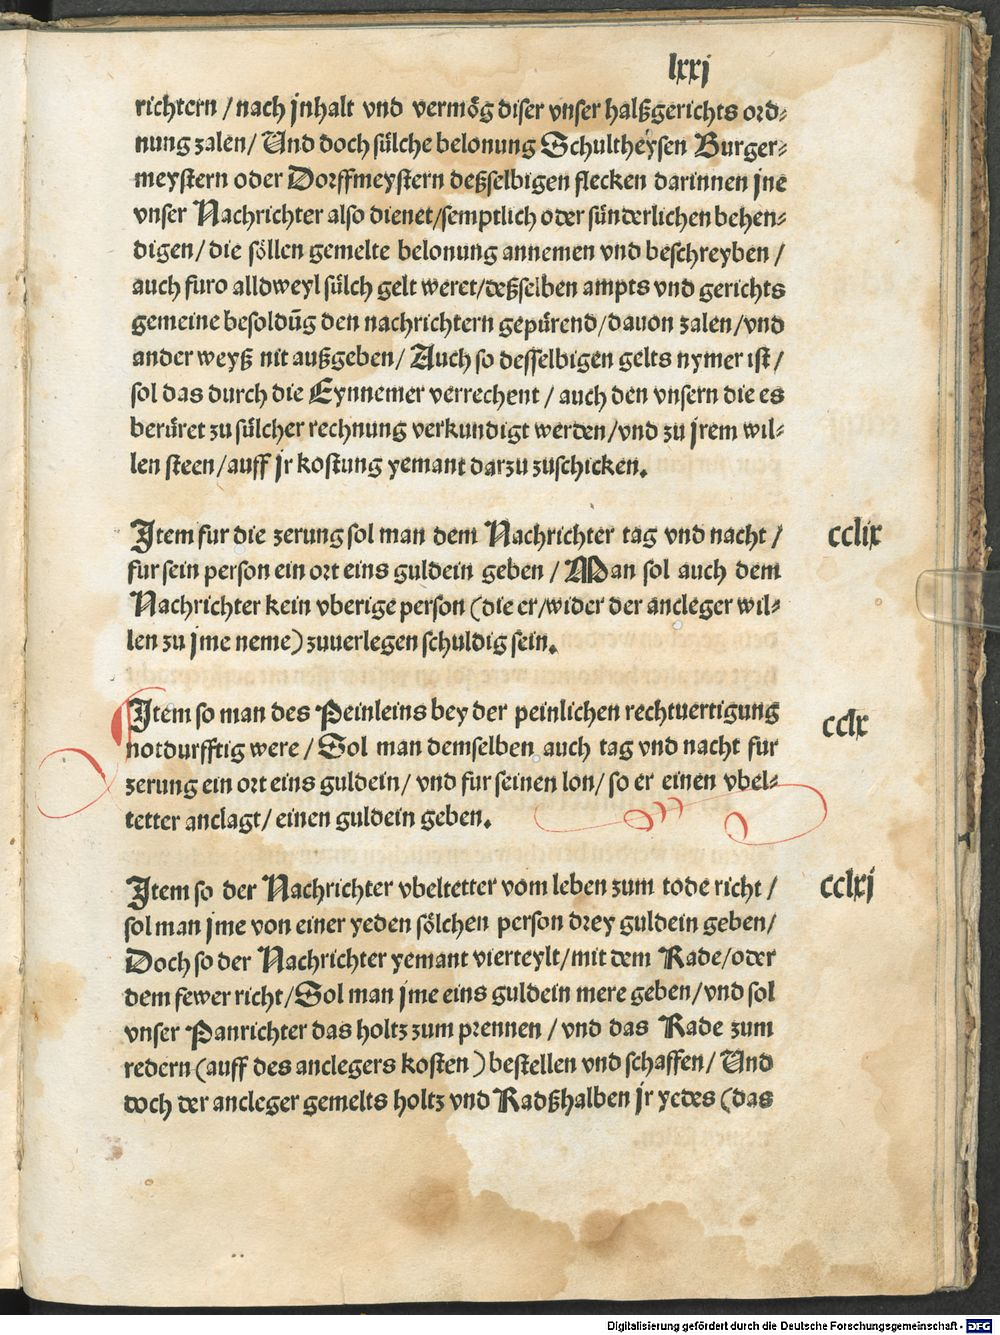 lxxj
richtern / nach jnhalt vnd vermög diser vnser halßgerichts ord⸗
nung zalen / Und doch sülche belonung Schultheÿsen Burger⸗
meystern oder Dorffmeystern deßselbigen flecken darinnen jne
vnser Nachrichter also dienet / semptlich oder sünderlichen behen⸗
digen / die söllen gemelte belonung annemen vnd beschreyben /
auch furo alldweyl sülch gelt weret / deßselben ampts vnd gerichts
gemeine besoldūg den nachrichtern gepürend / dauon zalen / vnd
ander weyß nit außgeben / Auch so desselbigen gelts nymer ist /
sol das durch die Eynnemer verrechent / auch den vnsern die es
berüret zu sülcher rechnung verkundigt werden / vnd zu jrem wil⸗
len steen / auff jr kostung yemant darzu zuschicken.
Item fur die zerung sol man dem Nachrichter tag vnd nacht /
fur sein person ein ort eins guldein geben / Man sol auch dem
Nachrichter kein vberige person (die er / wider der ancleger wil⸗
len zu jme neme) zuuerlegen schuldig sein.
cclix
Item so man des Peinleins bey der peinlichen rechtuertigung
notdurfftig were / Sol man demselben auch tag vnd nacht fur
zerung ein ort eins guldein / vnd fur seinen lon / so er einen vbel⸗
tetter anclagt / einen guldein geben.
cclx
Item so der Nachrichter vbeltetter vom leben zum tode richt /
sol man jme von einer yeden sölchen person drey guldein geben /
Doch so der Nachrichter yemant vierteylt / mit dem Rade / oder
dem fewer richt / Sol man jme eins guldein mere geben / vnd sol
vnser Panrichter das holtz zum prennen / vnd das Rade zum
redern (auff des anclegers kosten) bestellen vnd schaffen / Und
doch der ancleger gemelts holtz vnd Radßhalben jr yedes (das
cclxj
Digitalisierung gefördert durch die Deutsche Forschungsgemeinschaft - DFG